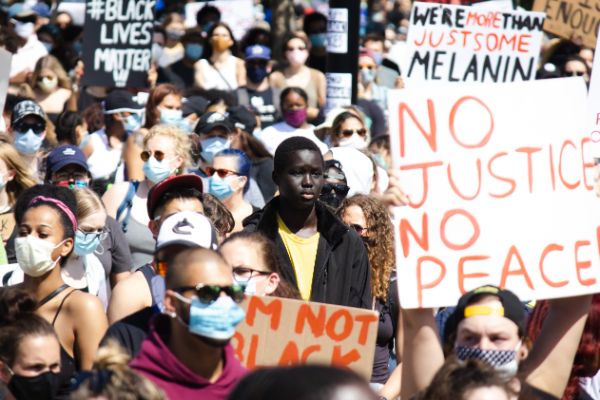 #BLACK
LIVES
MATTER
WE'RE MORE THAN
JUST SOME
MELANIN
ENOUGH
NO
JUSTICE
NO
PEACE
I'M NOT
BLACK